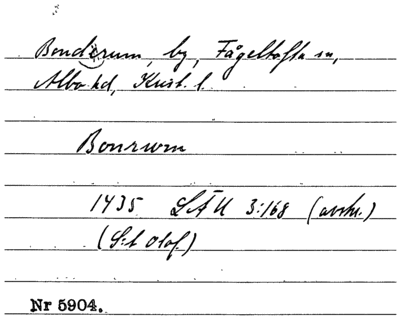 Bonderum, by, Fågeltofta sn,
Albo hd, Krist. l.
Bonrum
1435 LÄU 3:168 (avskr.)
(S:t Olof)
Nr 5904.